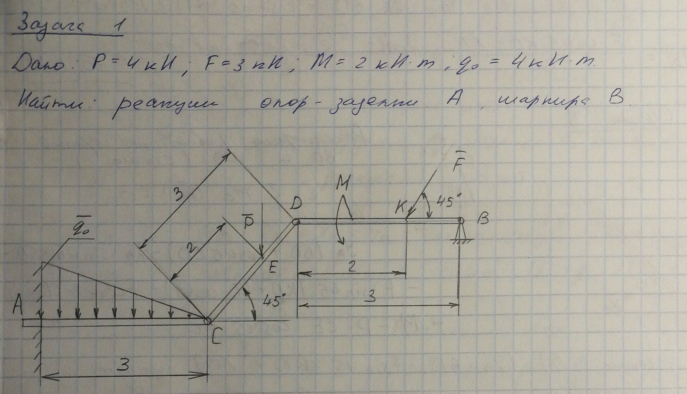 Задача 1
Дано: P = 4 кН; F = 3 кН; M = 2 кН·m; q₀ = 4 кН·m
Найти: реакции опор - заделки A шарнира B.
F̄
3
M
D
P̄
K
45°
B
q̄₀
2
E
2
A
45°
3
C
3